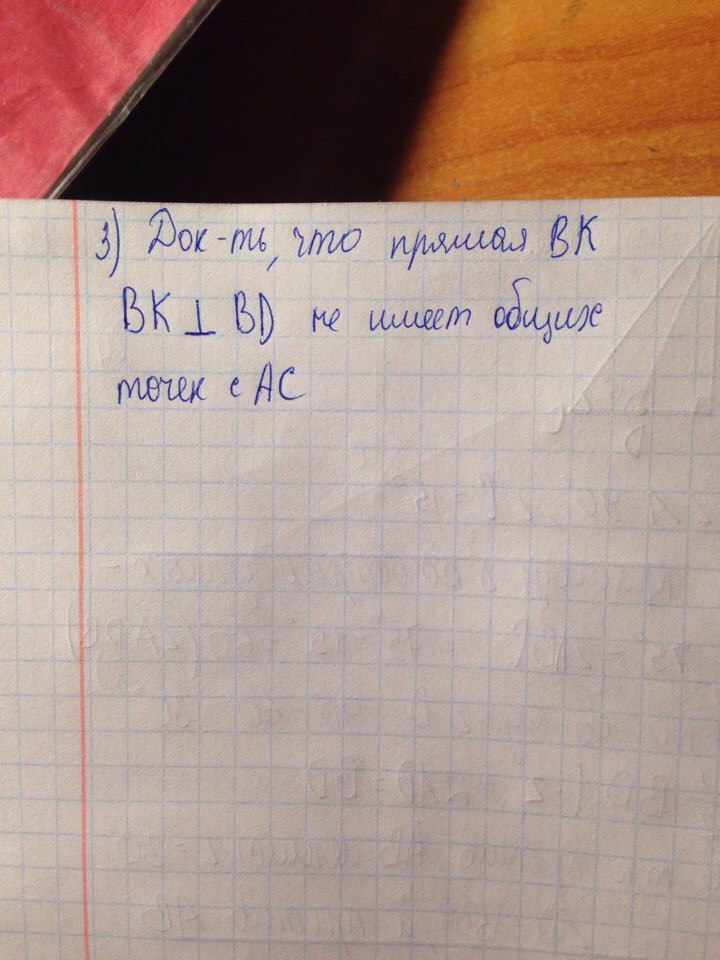 3) Док-ть, что прямая BK
BK ⊥ BD не имеет общих
точек с AC